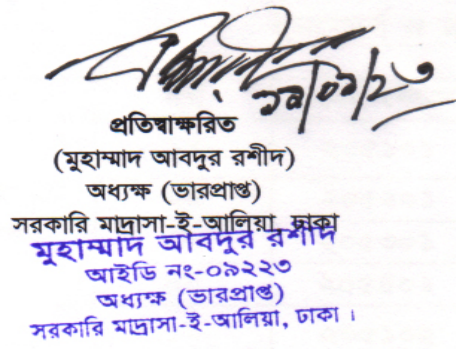 ১৯/০১/২৩
প্রতিস্বাক্ষরিত
(মুহাম্মাদ আবদুর রশীদ)
অধ্যক্ষ (ভারপ্রাপ্ত)
সরকারি মাদ্রাসা-ই-আলিয়া, ঢাকা
মুহাম্মাদ আবদুর রশীদ
আইডি নং-০৯২২৩
অধ্যক্ষ (ভারপ্রাপ্ত)
সরকারি মাদ্রাসা-ই-আলিয়া, ঢাকা ।